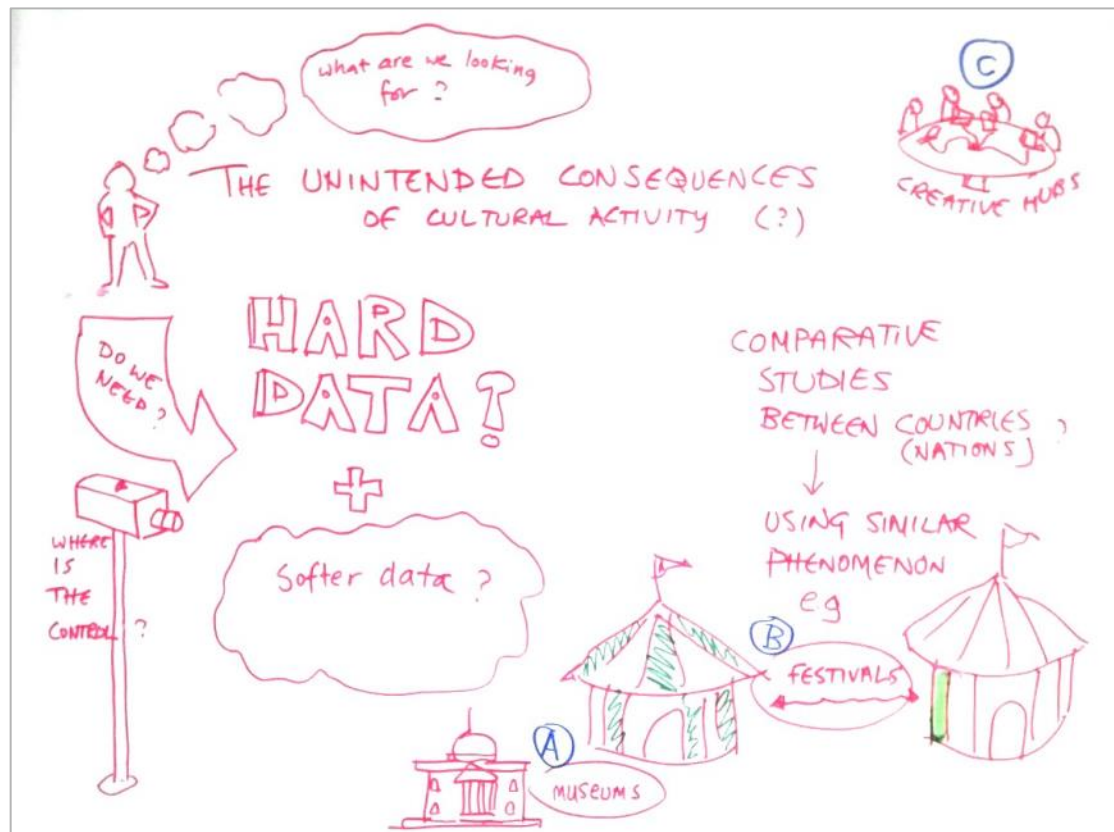 What are we looking
for ?
THE UNINTENDED CONSEQUENCES
OF CULTURAL ACTIVITY (?)
C
CREATIVE HUBS
DO WE
NEED ?
HARD
DATA?
+
Softer data ?
WHERE
IS
THE
CONTROL ?
COMPARATIVE
STUDIES
BETWEEN COUNTRIES ?
(NATIONS)
USING SIMILAR
PHENOMENON
e.g
B
FESTIVALS
A
MUSEUMS